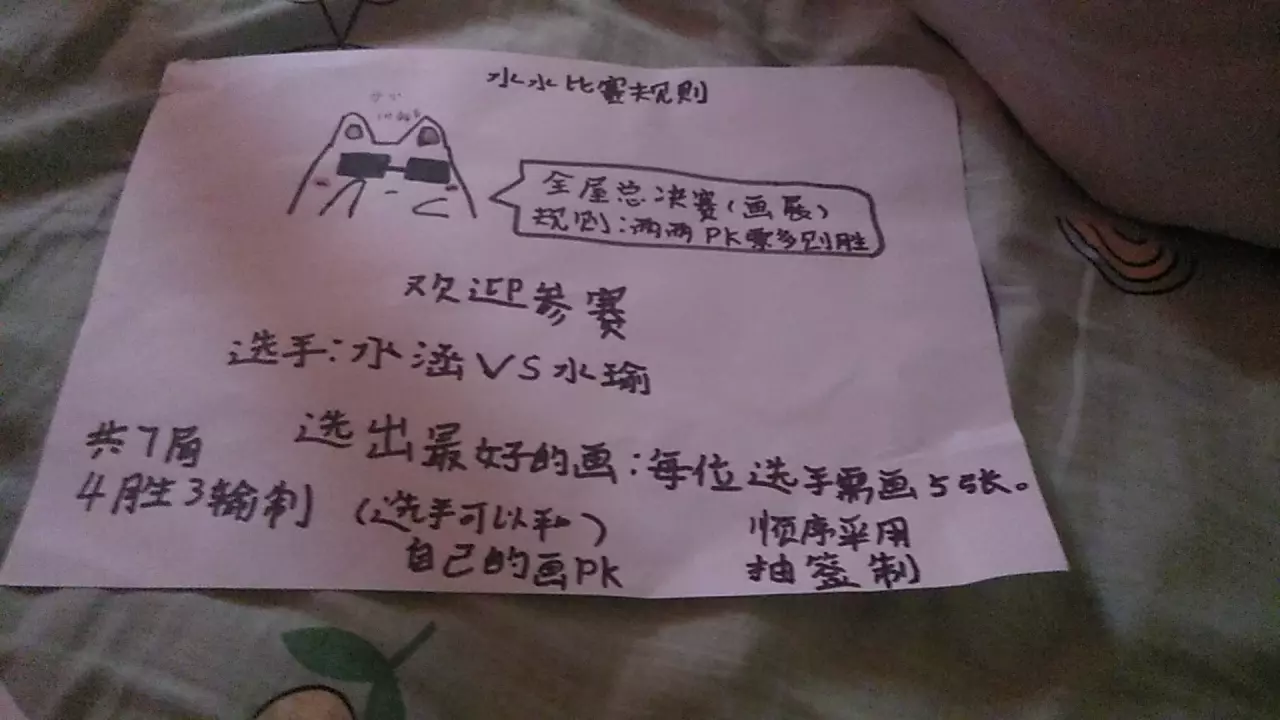 水水比赛规则
全屋总决赛(画展)
规则:两两PK票多则胜
欢迎参赛
选手:水涵VS水瑜
选出最好的画:每位选手需画55张。
共7局
4胜3输制
(选手可以和)
自己的画PK
顺序采用
抽签制